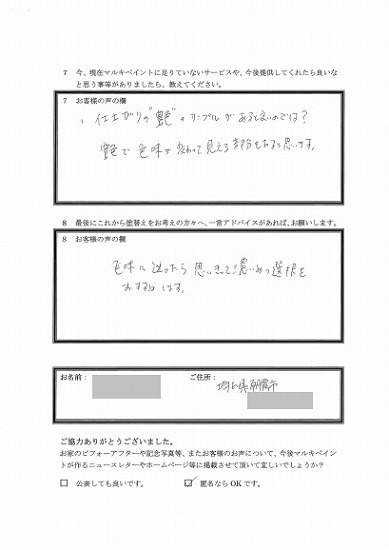 7 今、現在マルキペイントに足りていないサービスや、今後提供してくれたら良いな
と思う事等がありましたら、教えてください。
7 お客様の声の欄
、仕上がりの"艶"のサンプルがあると良いのでは?
艶で色味が変わって見える部分もあると思います。
8 最後にこれから塗替えをお考えの方々へ、一言アドバイスがあれば、お願いします。
8 お客様の声の欄
色味に迷ったら思いきって濃いめの選択を
おすすめします。
お名前:
ご住所:
埼玉県朝霞市
ご協力ありがとうございました。
お家のビフォーアフターや記念写真等、またお客様の声について、今後マルキペイント
が作るニュースレターやホームページ等に掲載させて頂いて宜しいでしょうか?
公表しても良いです。
匿名ならOKです。